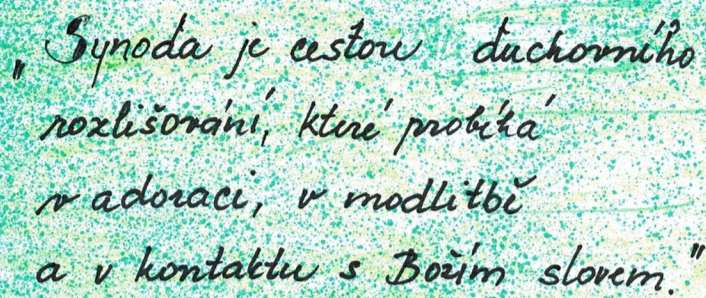 „Synoda je cestou duchovního
rozlišování, které probíhá
v adoraci, v modlitbě
a v kontaktu s Božím slovem."